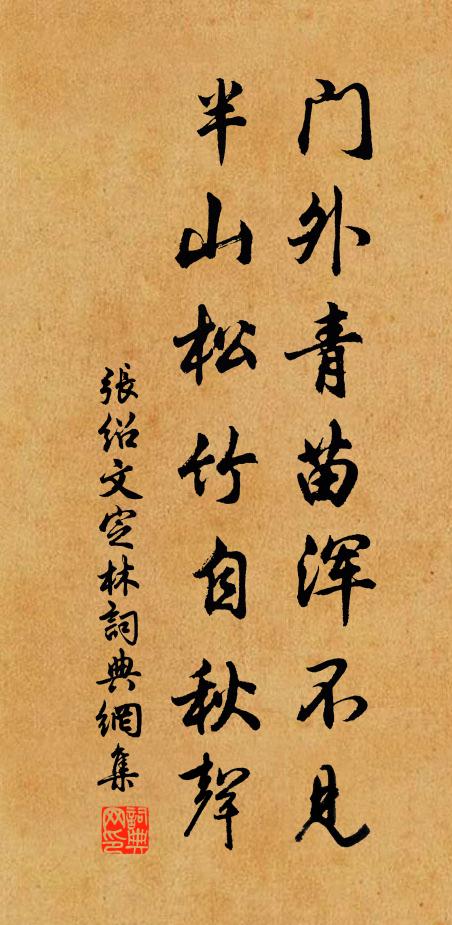 门外青苗浑不见
半山松竹自秋聲
張紹文定林詞典網集
詞典
网印